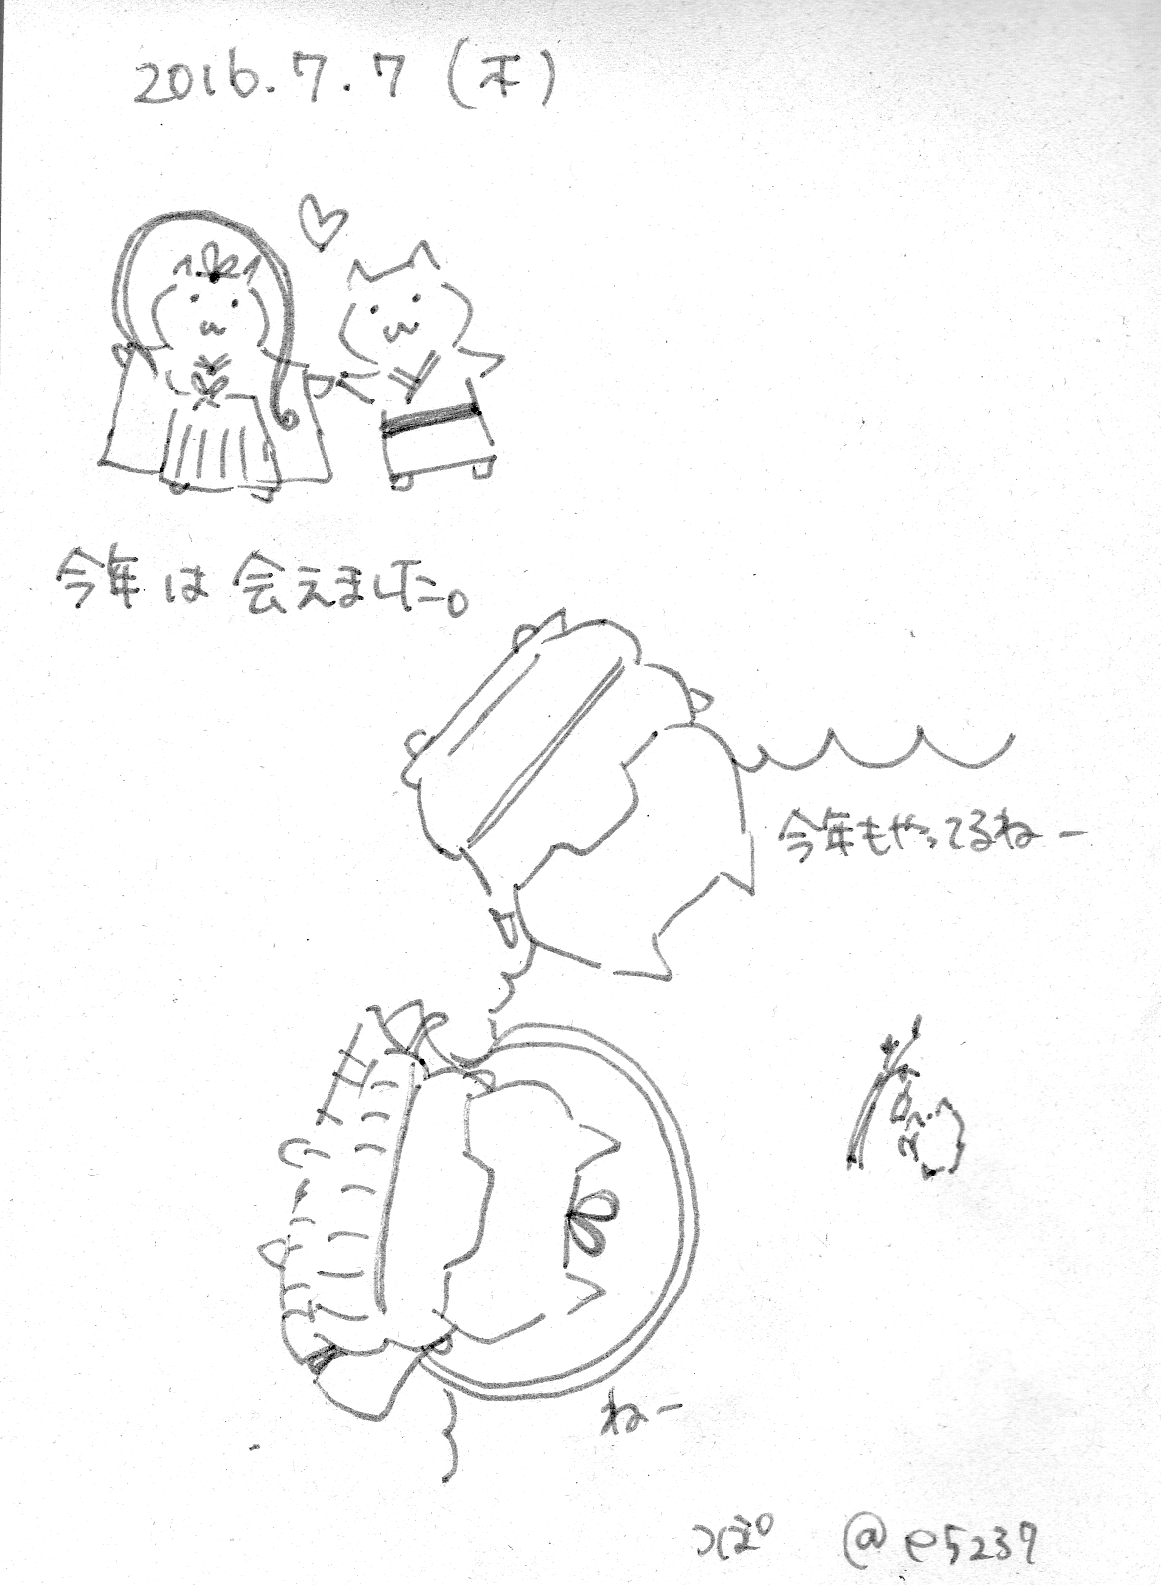 2016.7.7(木)
今年は会えました。
今年もやってるねー
ねー
つぽ @e5237